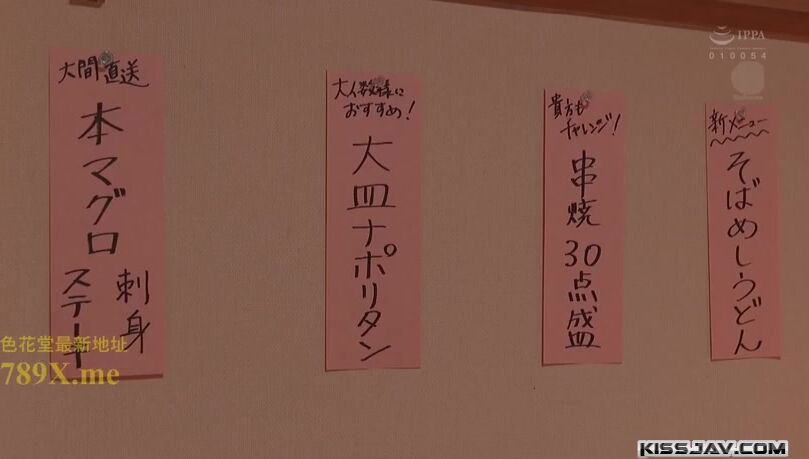 大間直送
本マグロ
刺身
ステーキ
大人数様に
おすすめ!
大皿ナポリタン
貴方も
チャレンジ!
串焼30点盛
新メニュー
そばめしうどん
IPPA
010054
色花堂最新地址
789X.me
KISSJAV.COM